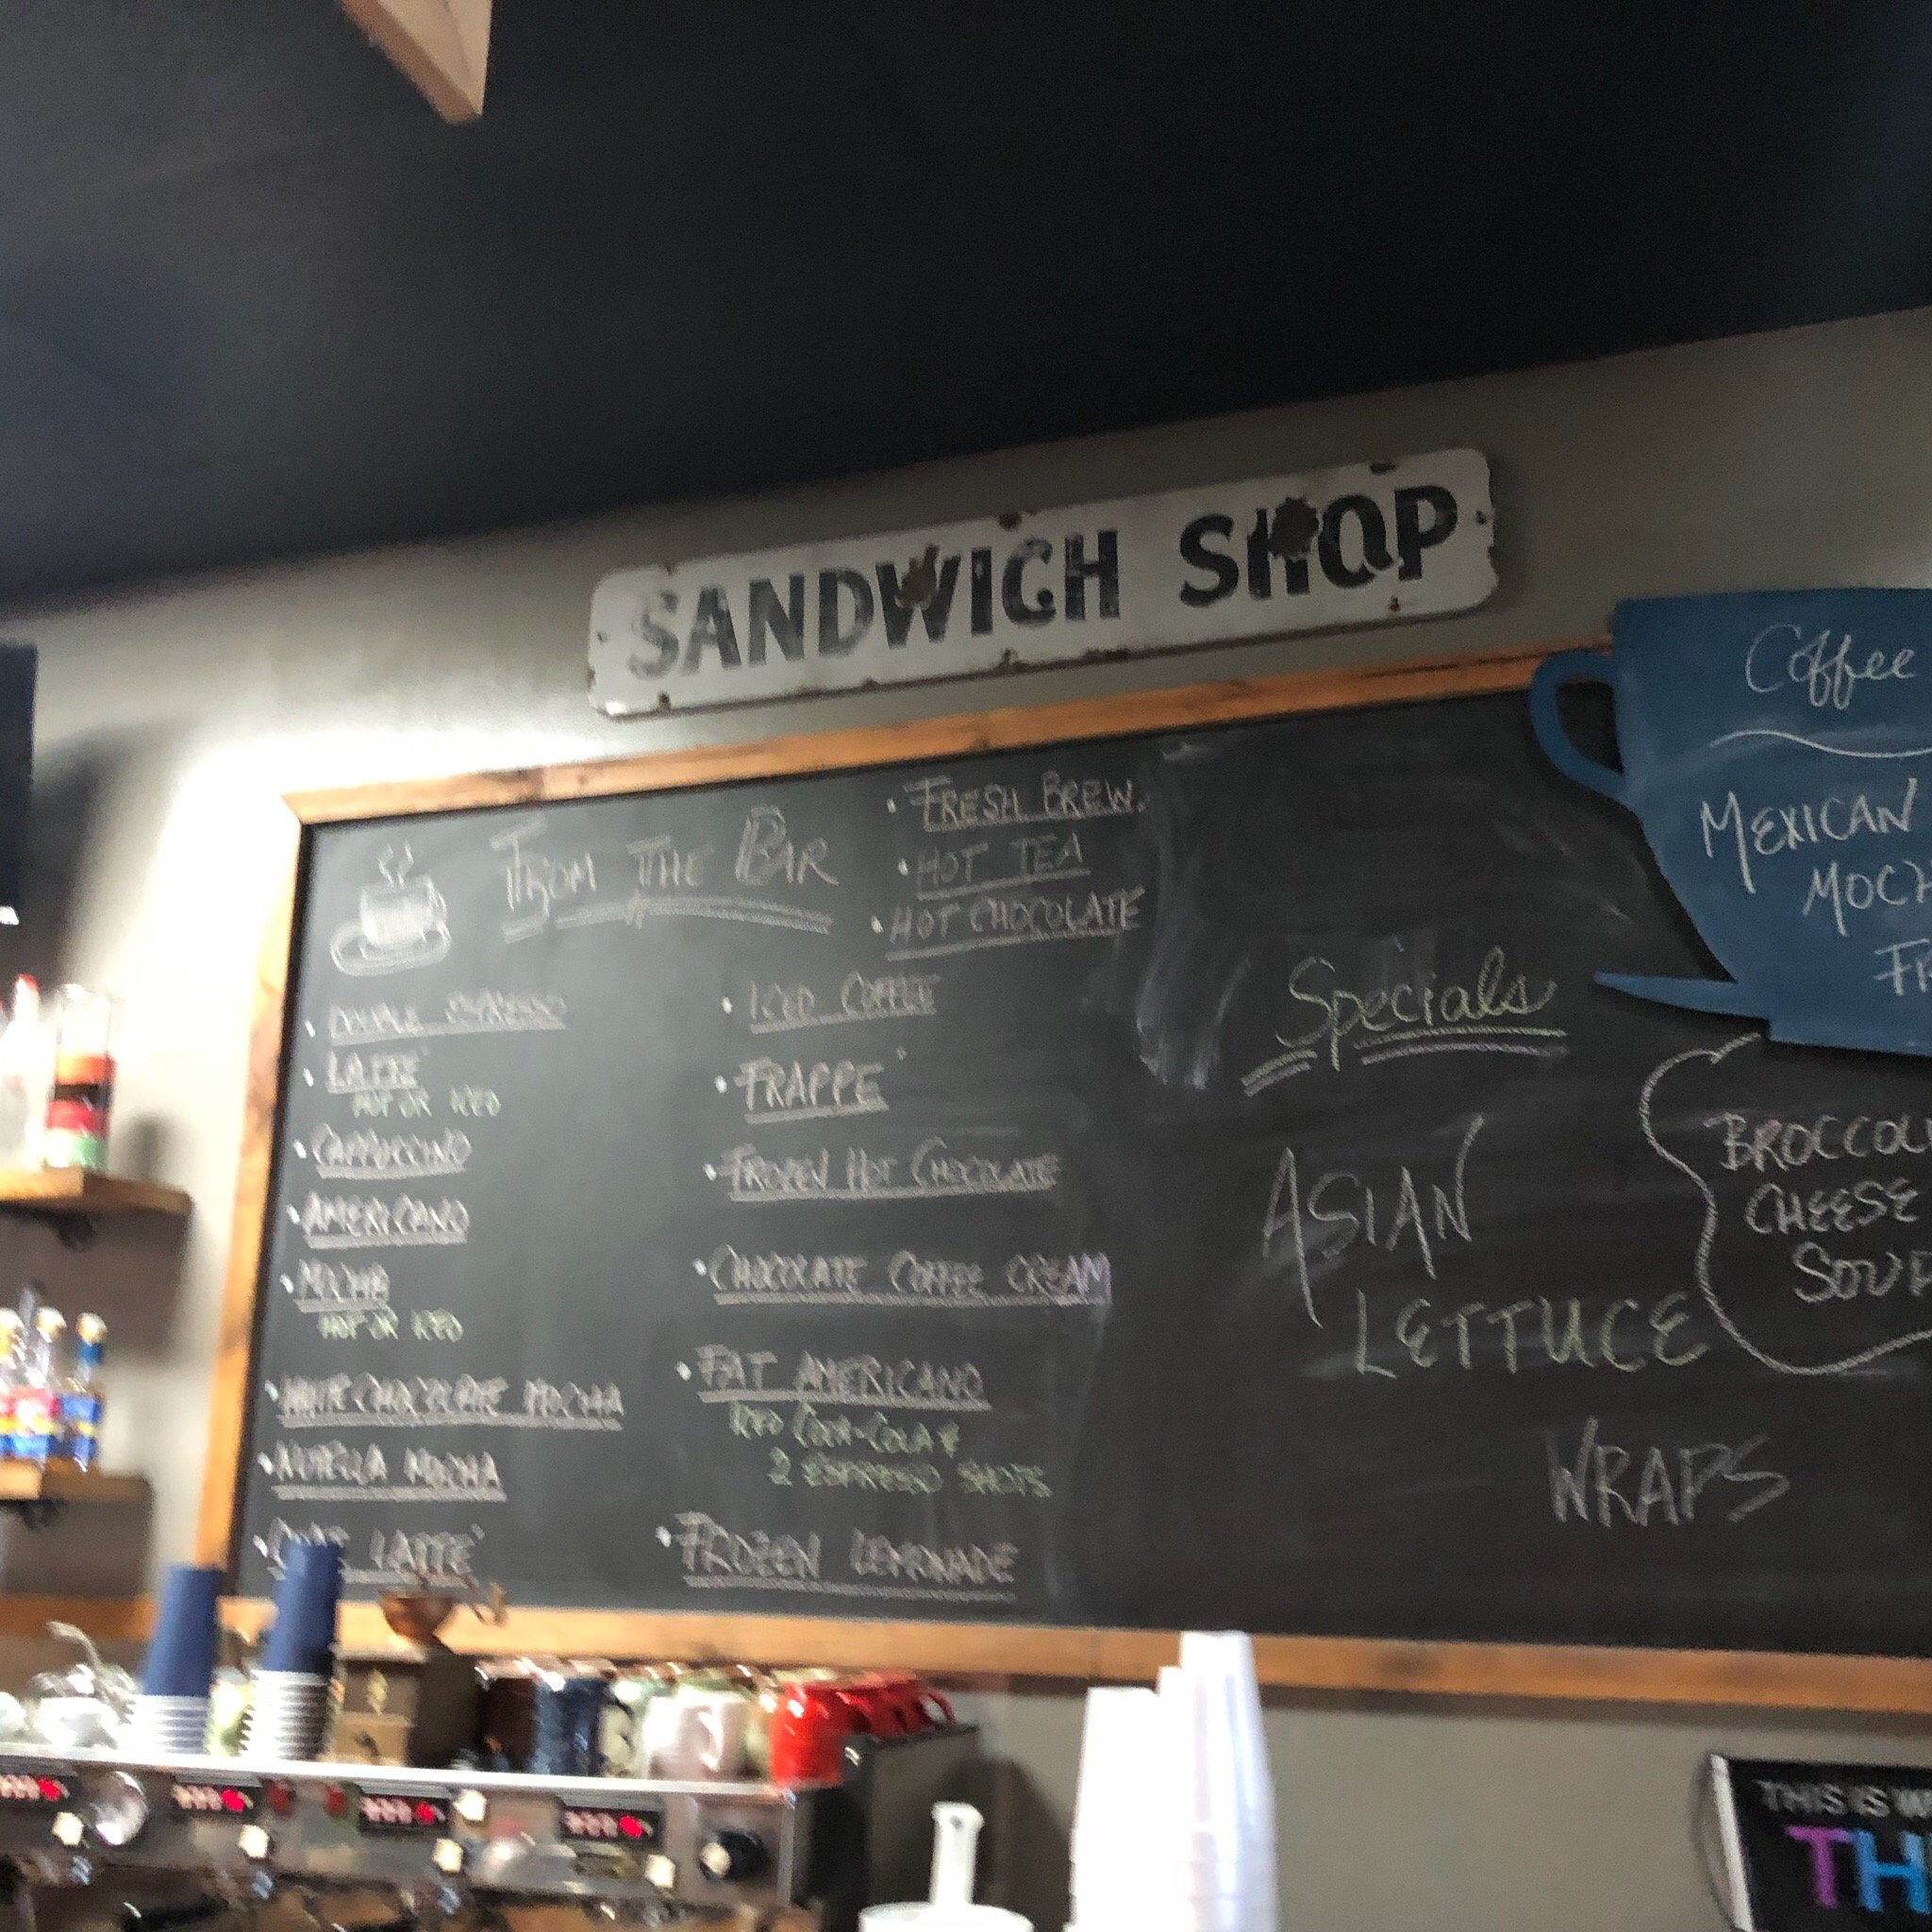 SANDWICH SHOP
FROM THE BAR
• FRESH BREW.
• HOT TEA
• HOT CHOCOLATE
• DOUBLE ESPRESSO
• LATTE
HOT OR ICED
• CAPPUCCINO
• AMERICANO
• MOCHA
HOT OR ICED
• WHITE CHOCOLATE MOCHA
• NUTELLA MOCHA
LATTE
• ICED COFFEE
• FRAPPE
• FROZEN HOT CHOCOLATE
• CHOCOLATE COFFEE CREAM
• FAT AMERICANO
ICED COCA-COLA &
2 ESPRESSO SHOTS
• FROZEN LEMONADE
Specials
ASIAN
LETTUCE
WRAPS
Coffee
MEXICAN
MOCH
FR
BROCCOLI
CHEESE
SOUP
THIS IS W
TH